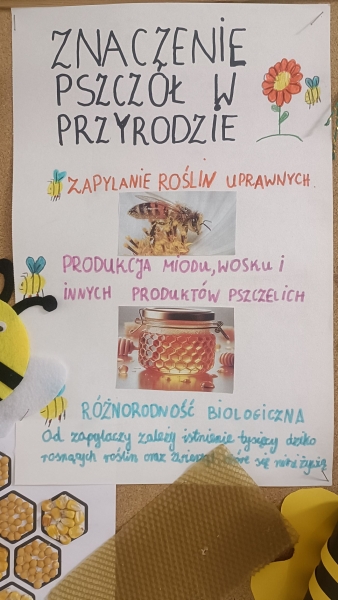 ZNACZENIE
PSZCZÓŁ W
PRZYRODZIE
ZAPYLANIE ROŚLIN UPRAWNYCH.
PRODUKCJA MIODU, WOSKU i
INNYCH PRODUKTÓW PSZCZELICH
RÓŻNORODNOŚĆ BIOLOGICZNA
Od zapylaczy zależy istnienie tysięcy dziko
rosnących roślin oraz które się nimi żywią